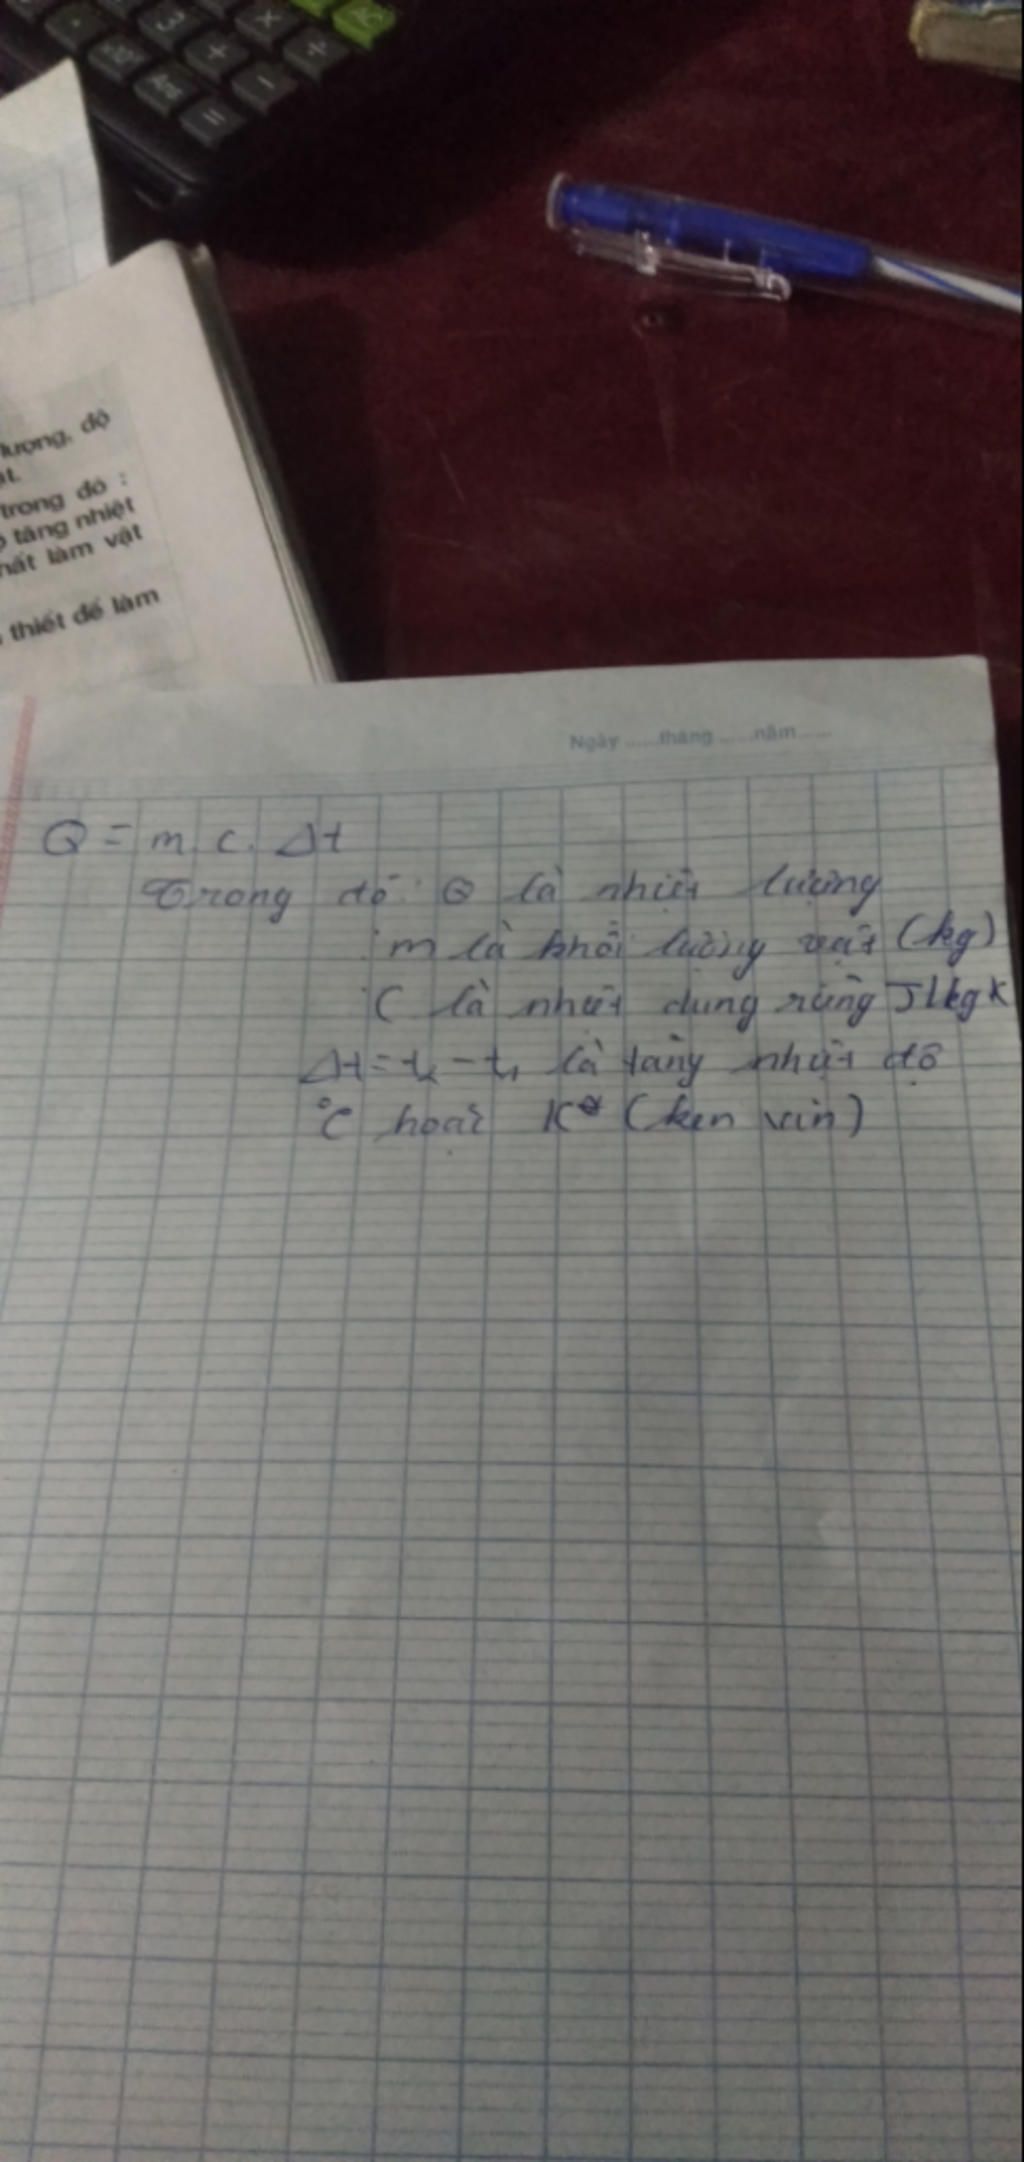 AC
3
×
÷
+
−
x10ˣ
Ans
=
lượng, độ
trong đó :
tăng nhiệt
làm vật
thiết để làm
Ngày ......tháng ......năm......
Q = m. c. Δt
Trong đó: Q là nhiệt lượng
m là khối lượng vật (kg)
C là nhiệt dung riêng J/kgK
Δt = t₂ - t₁ là tăng nhiệt độ
°C hoặc K (ken vin)